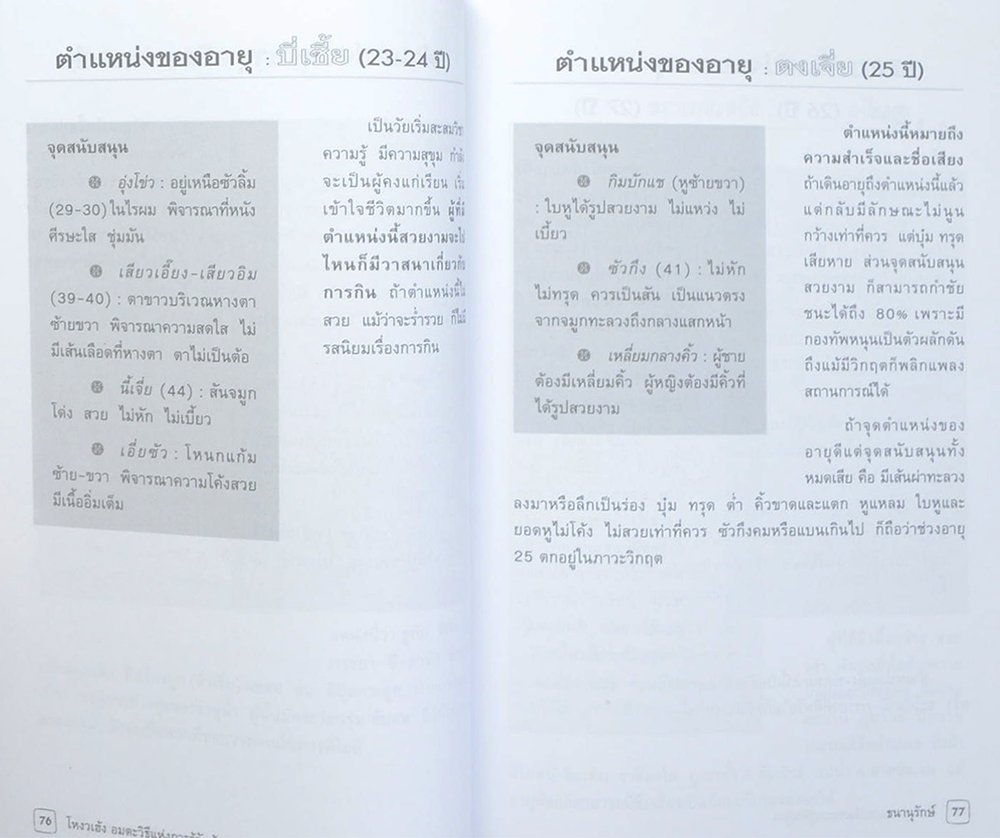 ตำแหน่งของอายุ : บี่เชี้ย (23-24 ปี)
จุดสนับสนุน
อุ่งโข่ว : อยู่เหนือซัวลิ้ม
(29-30) ในไรผม พิจารณาที่หนัง
ศีรษะใส ชุ่มมัน
เสียวเอี๊ยง-เสียวอิม
(39-40) : ตาขาวบริเวณหางตา
ซ้ายขวา พิจารณาความสดใส ไม่
มีเส้นเลือดที่หางตา ตาไม่เป็นต้อ
นี้เจี่ย (44) : สันจมูก
โด่ง สวย ไม่หัก ไม่เบี้ยว
เอี่ยซัว : โหนกแก้ม
ซ้าย-ขวา พิจารณาความโค้งสวย
มีเนื้ออิ่มเต็ม
เป็นวัยเริ่มสะสมวิชา
ความรู้ มีความสุขุม
จะเป็นผู้คงแก่เรียน เริ่ม
เข้าใจชีวิตมากขึ้น ผู้ที่มี
ตำแหน่งนี้สวยงามจะไป
ไหนก็มีวาสนาเกี่ยวกับ
การกิน ถ้าตำแหน่งนี้ไม่
สวย แม้ว่าจะร่ำรวย ก็ไม่มี
รสนิยมเรื่องการกิน
76 โหงวเฮ้ง อมตะวิธีแห่งการรู้
ตำแหน่งของอายุ : ตงเจี่ย (25 ปี)
จุดสนับสนุน
กิมบักแช (หูซ้ายขวา)
: ใบหูได้รูปสวยงาม ไม่แหว่ง ไม่
เบี้ยว
ซัวกึง (41) : ไม่หัก
ไม่ทรุด ควรเป็นสัน เป็นแนวตรง
จากจมูกทะลวงถึงกลางแสกหน้า
เหลี่ยมกลางคิ้ว : ผู้ชาย
ต้องมีเหลี่ยมคิ้ว ผู้หญิงต้องมีคิ้วที่
ได้รูปสวยงาม
ตำแหน่งนี้หมายถึง
ความสำเร็จและชื่อเสียง
ถ้าเดินอายุถึงตำแหน่งนี้แล้ว
แต่กลับมีลักษณะไม่นูน
กว้างเท่าที่ควร แต่บุ๋ม ทรุด
เสียหาย ส่วนจุดสนับสนุน
สวยงาม ก็สามารถกำชัย
ชนะได้ถึง 80% เพราะมี
กองทัพหนุนเป็นตัวผลักดัน
ถึงแม้มีวิกฤตก็พลิกแพลง
สถานการณ์ได้
ถ้าจุดตำแหน่งของ
อายุดีแต่จุดสนับสนุนทั้ง
หมดเสีย คือ มีเส้นผ่าทะลวง
ลงมาหรือลึกเป็นร่อง บุ๋ม ทรุด ต่ำ คิ้วขาดและแตก หูแหลม ใบหูและ
ยอดหูไม่โค้ง ไม่สวยเท่าที่ควร ซัวกึงคมหรือแบนเกินไป ก็ถือว่าช่วงอายุ
25 ตกอยู่ในภาวะวิกฤต
ธนานุรักษ์ 77